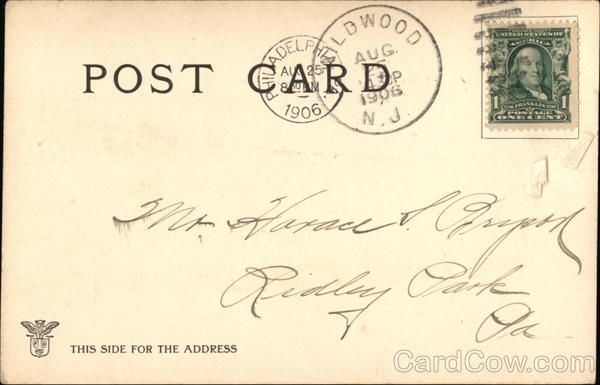 POST CARD
PHILADELPHIA
AUG 25
1906
WILDWOOD
AUG.
1906
N.J.
UNITED STATES OF AMERICA
FRANKLIN
1 1
POSTAGE
ONE CENT
Mr Horace S.
Ridley Park
Pa
THIS SIDE FOR THE ADDRESS
CardCow.com